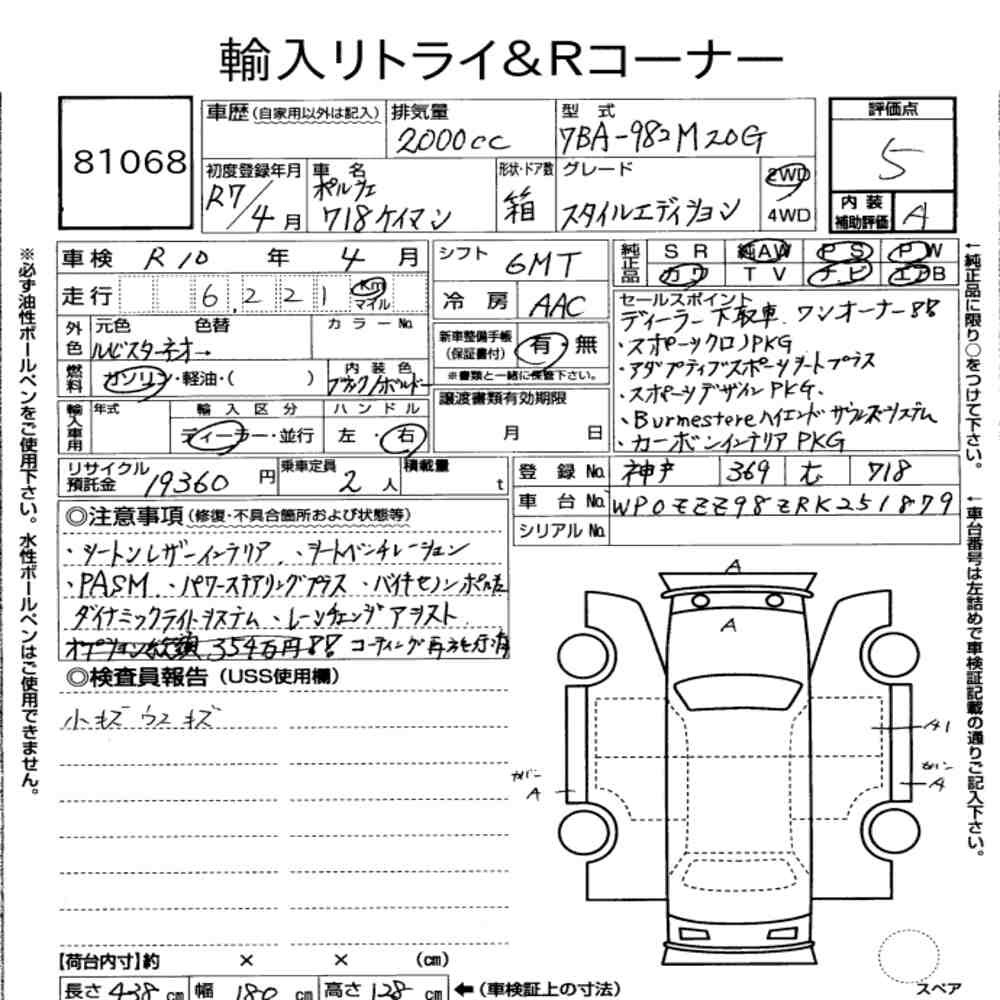 輸入リトライ&Rコーナー
81068
車歴(自家用以外は記入)
排気量
2000cc
型式
7BA-982M20G
評価点
5
初度登録年月
R7/4月
車名
ポルシェ
718ケイマン
形状・ドア数
箱
グレード
スタイルエディション
2WD
4WD
内装
補助評価
A
車検 R10 年 4 月
シフト
6MT
純正品
SR 純AW PS PW
カワ TV ナビ エアB
走行 6,221 Km マイル
冷房 AAC
セールスポイント
ディーラー下取車、ワンオーナー!!
・スポーツクロノPKG
・アダプティブスポーツシートプラス
・スポーツデザインPKG.
・Burmestereハイエンドサウンドシステム
・カーボンインテリアPKG
外色 元色 色替 カラーNo.
ルビスターネオ→
新車整備手帳
(保証書付)
有・無
※書類と一緒に保管下さい。
燃料 ガソリン・軽油・( )
内装色
ブラック/ボルドー
譲渡書類有効期限
月 日
輸入車用 年式
輸入区分
ディーラー・並行
ハンドル
左・右
リサイクル預託金 19360 円
乗車定員 2 人
積載量 t
登録No. 神戸 369 む 718
車台No. WP0ZZZ98ZRK251879
シリアルNo.
◎注意事項(修復・不具合箇所および状態等)
・シートンレザーインテリア、・シートベンチレーション
・PASM、・パワーステアリングプラス、・バイキセノンポルシェ
ダイナミックライトシステム、・レーンチェンジアシスト
オプション総額354万円!! コーティング再施行済
◎検査員報告(USS使用欄)
小キズ ウスキズ
A
A
A1
カバー
A
カバー
A
【荷台内寸】約 × × (cm)
長さ 438 cm 幅 180 cm 高さ 128 cm ←(車検証上の寸法)
スペア
※必ず油性ボールペンをご使用下さい。水性ボールペンはご使用できません。
←純正品に限り○をつけて下さい。
←車台番号は左詰めで車検証記載の通りご記入下さい。